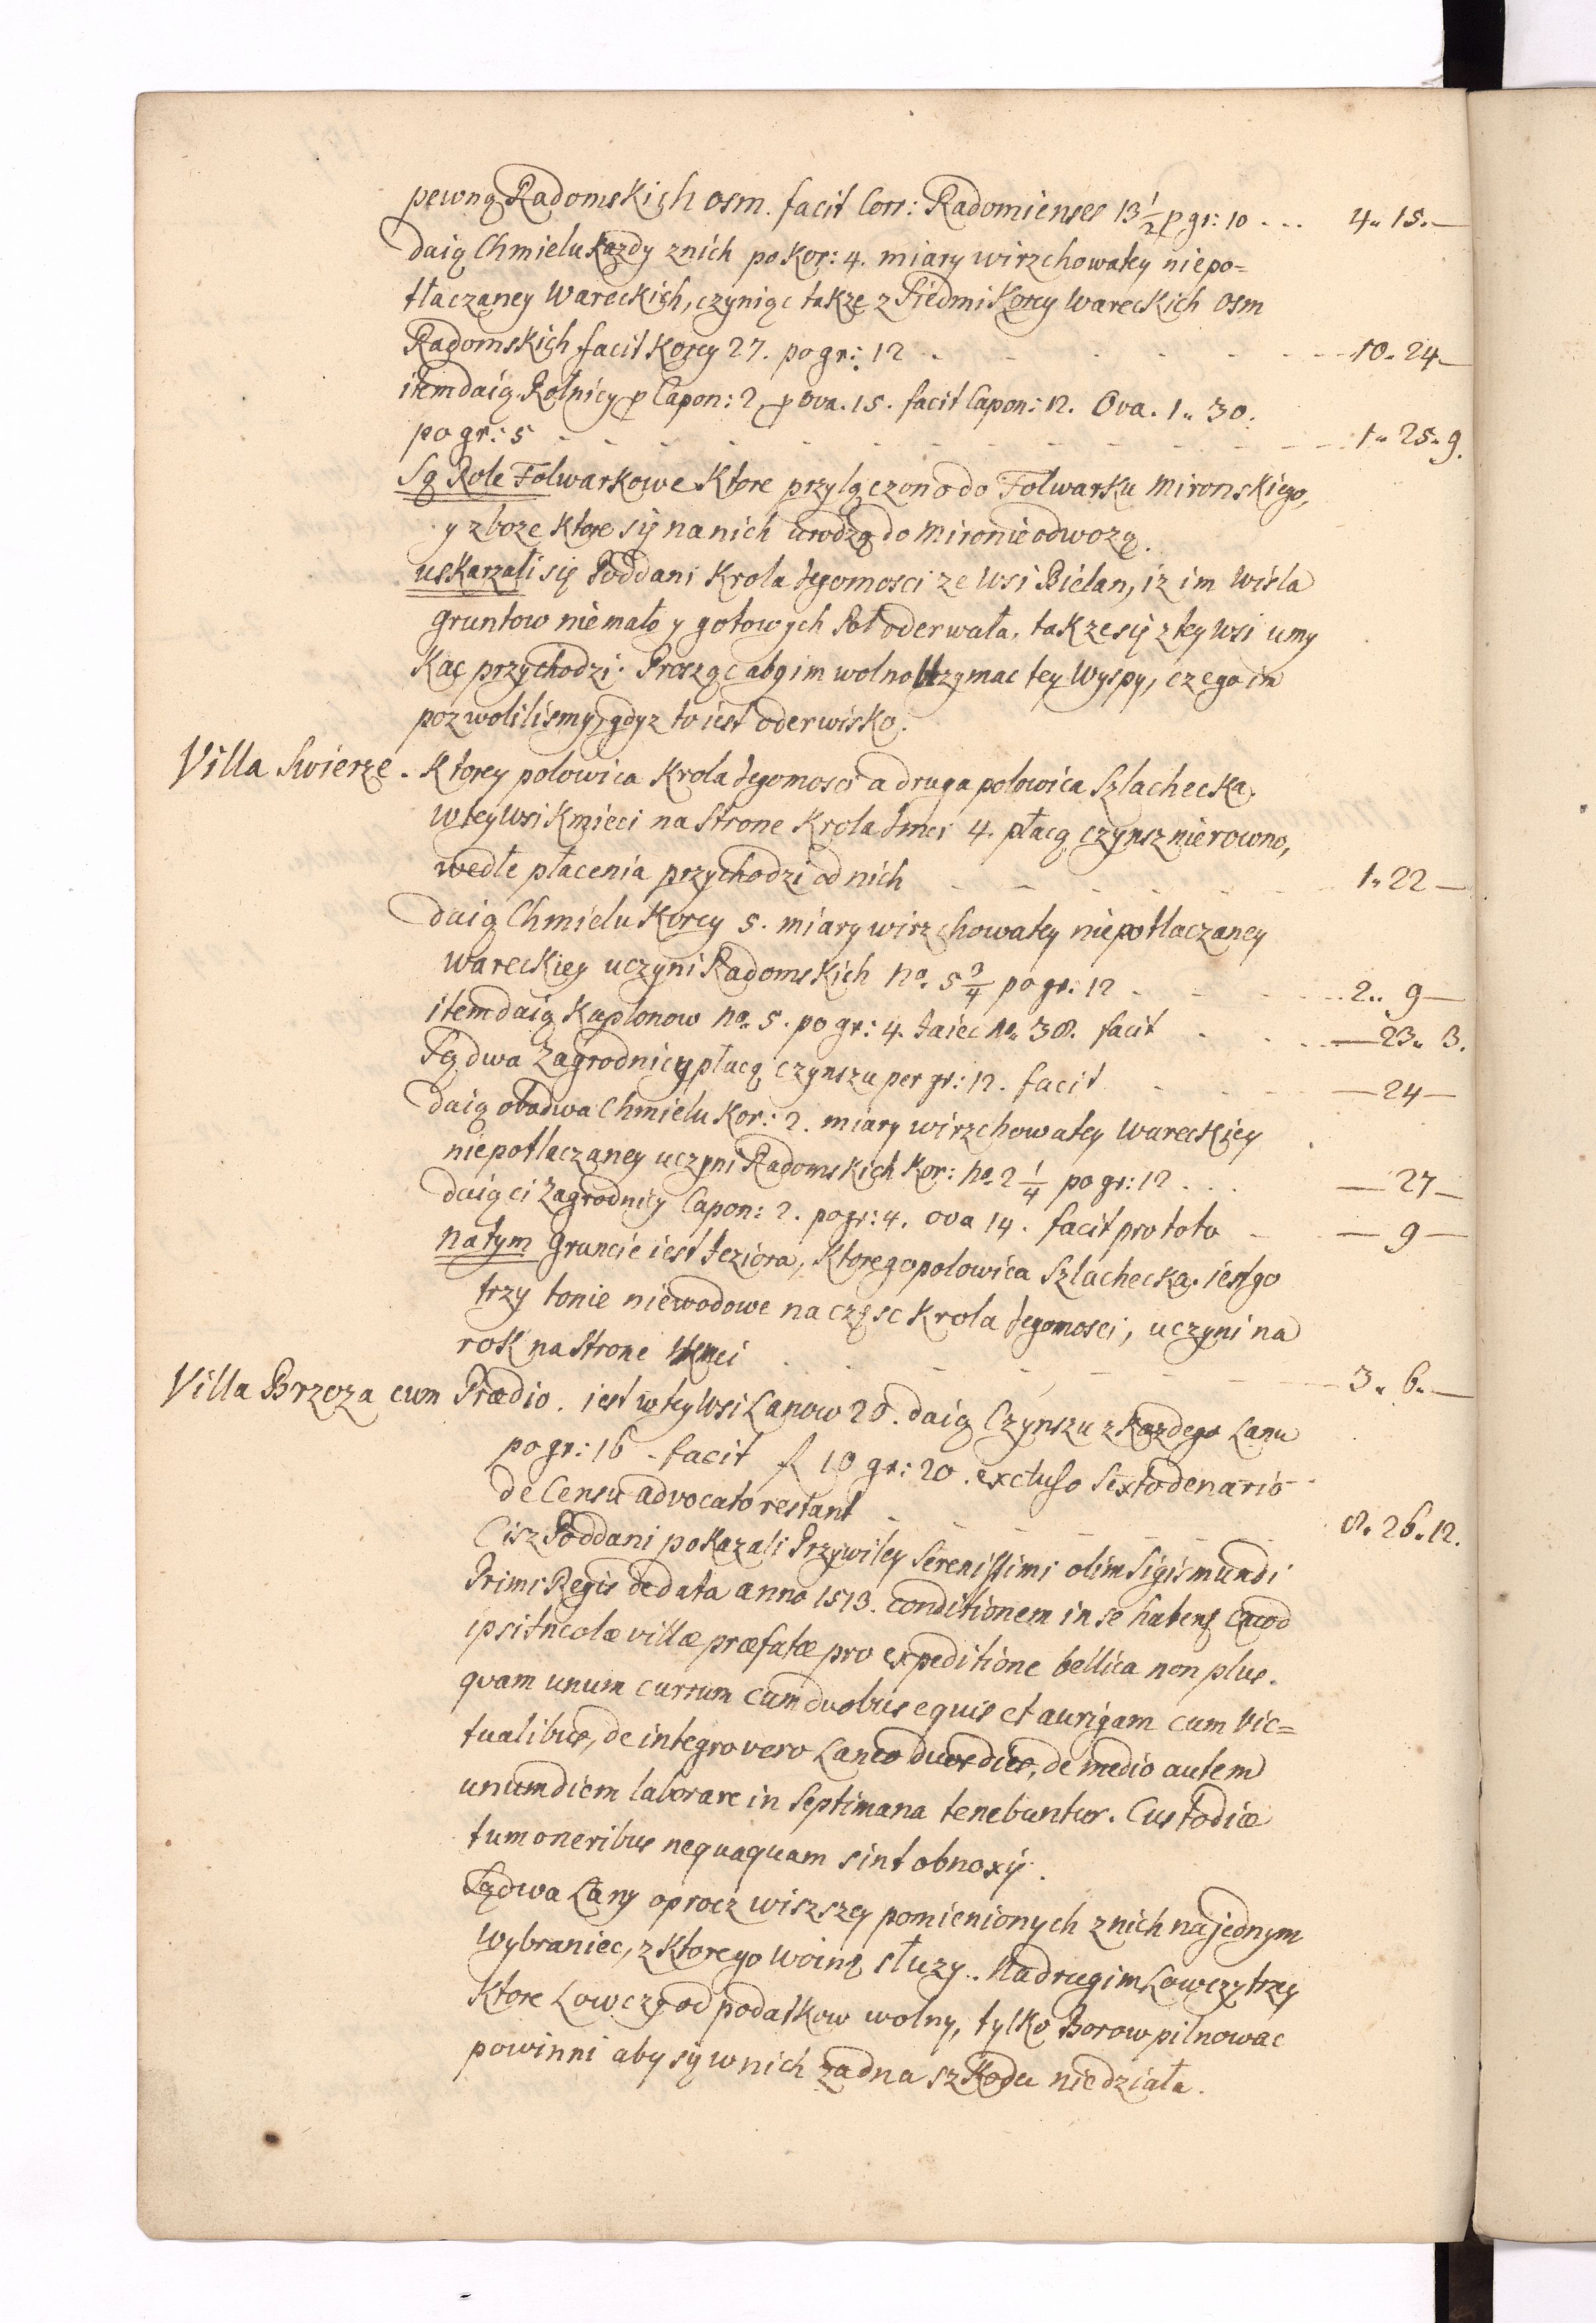 pewną Radomskich osm. facit Corr: Radomienses 13 1/2 p gr: 10 . . . 4 „ 15. —
daią Chmielu kazdy znich po Kor: 4. miary wirzchowatey niepo=
tłaczaney Wareckich, czyniąc takze z Siedmi Korcy Wareckich osm
Radomskich facit Korcy 27. po gr: 12 - - - 10. 24 —
item daią Rolnicy p Capon: 2. p Ova. 15. facit Capon: 12. Ova. 1 „ 30.
po gr: 5 - - - 1 „ 25 „ 9.
Są Role Folwarkowe Ktore przyłączono do Folwarku Mironskiego,
y zboze Ktore się na nich urodzą do Mironie odwozą.
uskarzali się Poddani Krola Jegomosci ze Wsi Bielan, iz im Wisla
gruntow niemało y gotowych Pol oderwała, tak ze się z tey Wsi umy
Kac przychodzi. Prosząc aby im wolno trzymac tey Wyspy, czego im
pozwolilismy, gdyz to iest oderwisko.
Villa Swierze . Ktorey polowica Krola Jegomosci a druga polowica Szlachecka.
W tey Wsi Kmieci na Strone Krola Jmci 4. płacą czynsz nierowno,
wedłe płacenia przychodzi od nich - - - 1 „ 22 —
daią Chmielu Korcy 5. miary wirzchowatey niepotlaczaney
Wareckiey uczyni Radomskich No. 5 3/4 po gr: 12 - - - 2 „ 9 —
item daią Kaplonow No. 5. po gr: 4. Jaiec No. 38. facit - - - — 23 „ 3.
Są dwa Zagrodnicy płacą czynszu per gr: 12. facit - - - — 24 —
daią obadwa Chmielu Kor: 2. miary wirzchowatey Wareckiey
niepotlaczaney uczyni Radomskich Kor: No. 2 1/4 po gr: 12 . . . — 27 —
daią ci Zagrodnicy Capon: 2. po gr: 4. ova 14. facit pro toto - — 9 —
Na tym Gruncie iest Jeziora, Ktorego polowica Szlachecka. iest go
trzy tonie niewodowe na częsc Krola Jegomosci, uczyni na
rok na Strone - - - 3 „ 6 „ —
Villa Brzoza cum Prædio. iest w tey Wsi Lanow 20. daią Czynszu z Kazdego Lanu
po gr: 16 . facit f 10 gr: 20. excluso Sexto denario
de Censu advocato restant - - - 8 „ 26 „ 12.
Cisz Poddani pokazali Przywiley Serenissimi olim Sigismundi
Primi Regis de data anno 1513. conditionem in se habens Quod
ipsi Incolæ villæ præfatæ pro expeditione bellica non plus
quam unum currum cum duobus equis et aurigam cum Vic=
tualibus, de integro vero Laneo duos dies, de medio autem
unum diem laborare in Septimana tenebuntur. Custodiæ
tum oneribus nequaquam sint obnoxÿ.
Są dwa Lany oprocz wiszszey pomienionych z nich na jednym
Wybraniec, z Ktorego Woinę słuzy.. Na drugim Lowczy trzey
Ktore Lowczy od podatkow wolny, tylko Borow pilnowac
powinni aby się w nich zadna szkoda niedziała.